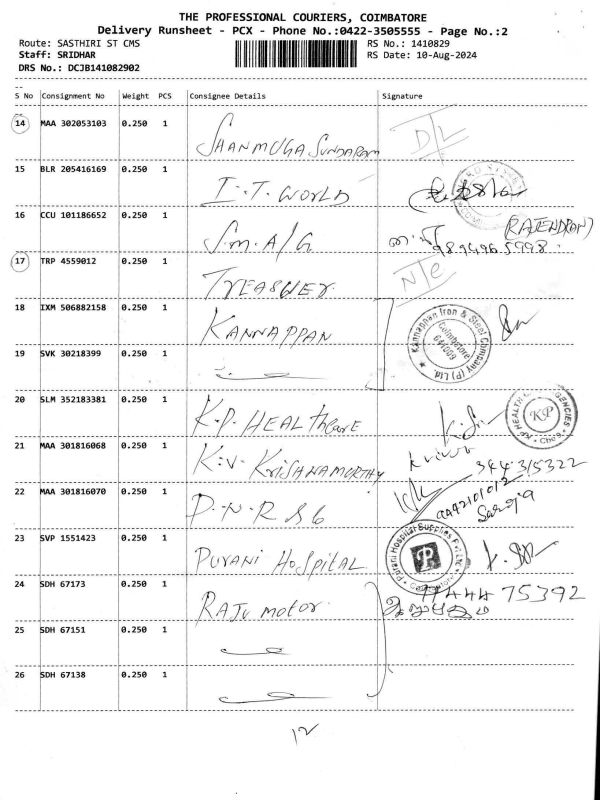 THE PROFESSIONAL COURIERS, COIMBATORE
Delivery Runsheet - PCX - Phone No.:0422-3505555 - Page No.:2
Route: SASTHIRI ST CMS RS No.: 1410829
Staff: SRIDHAR RS Date: 10-Aug-2024
DRS No.: DCJB141082902
S No Consignment No Weight PCS Consignee Details Signature
14 MAA 302053103 0.250 1 SHANMUGA SUNDARAM D/L
15 BLR 205416169 0.250 1 I.T. WORLD
16 CCU 101186652 0.250 1 S.M.A/G (RAJENDRAN)
17 TRP 4559012 0.250 1 TREASUER N/e
18 IXM 506882158 0.250 1 KANNAPPAN Kannappan Iron & Steel Company (P) Ltd. Coimbatore
19 SVK 30218399 0.250 1
20 SLM 352183381 0.250 1 K.P. HEALthcare KP
21 MAA 301816068 0.250 1 K.V. KRISHNAMURTHY 344315322
22 MAA 301816070 0.250 1 P.N.R & G
23 SVP 1551423 0.250 1 PURANI HOSPITAL Purani Hospital Supplies Pvt Ltd
24 SDH 67173 0.250 1 RAJU motor 75392
25 SDH 67151 0.250 1
26 SDH 67138 0.250 1
12